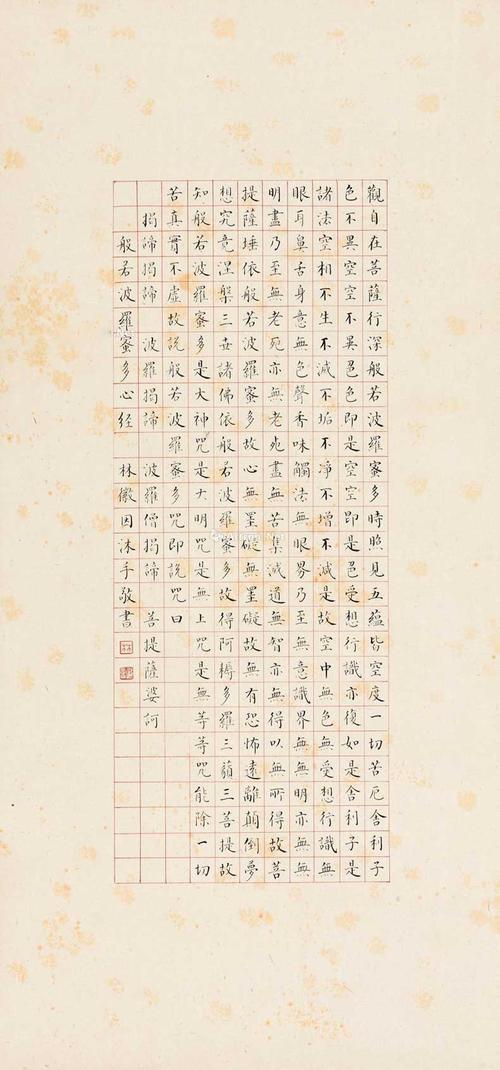 觀自在菩薩行深般若波羅蜜多時照見五蘊皆空度一切苦厄舍利子
色不異空空不異色色即是空空即是色受想行識亦復如是舍利子是
諸法空相不生不滅不垢不淨不增不減是故空中無色無受想行識無
眼耳鼻舌身意無色聲香味觸法無眼界乃至無意識界無無明亦無無
明盡乃至無老死亦無老死盡無苦集滅道無智亦無得以無所得故菩
提薩埵依般若波羅蜜多故心無罣礙無罣礙故無有恐怖遠離顛倒夢
想究竟涅槃三世諸佛依般若波羅蜜多故得阿耨多羅三藐三菩提故
知般若波羅蜜多是大神咒是大明咒是無上咒是無等等咒能除一切
苦真實不虛故說般若波羅蜜多咒即說咒曰
揭諦揭諦 波羅揭諦 波羅僧揭諦 菩提薩婆訶
般若波羅蜜多心経 林徽因沐手敬書